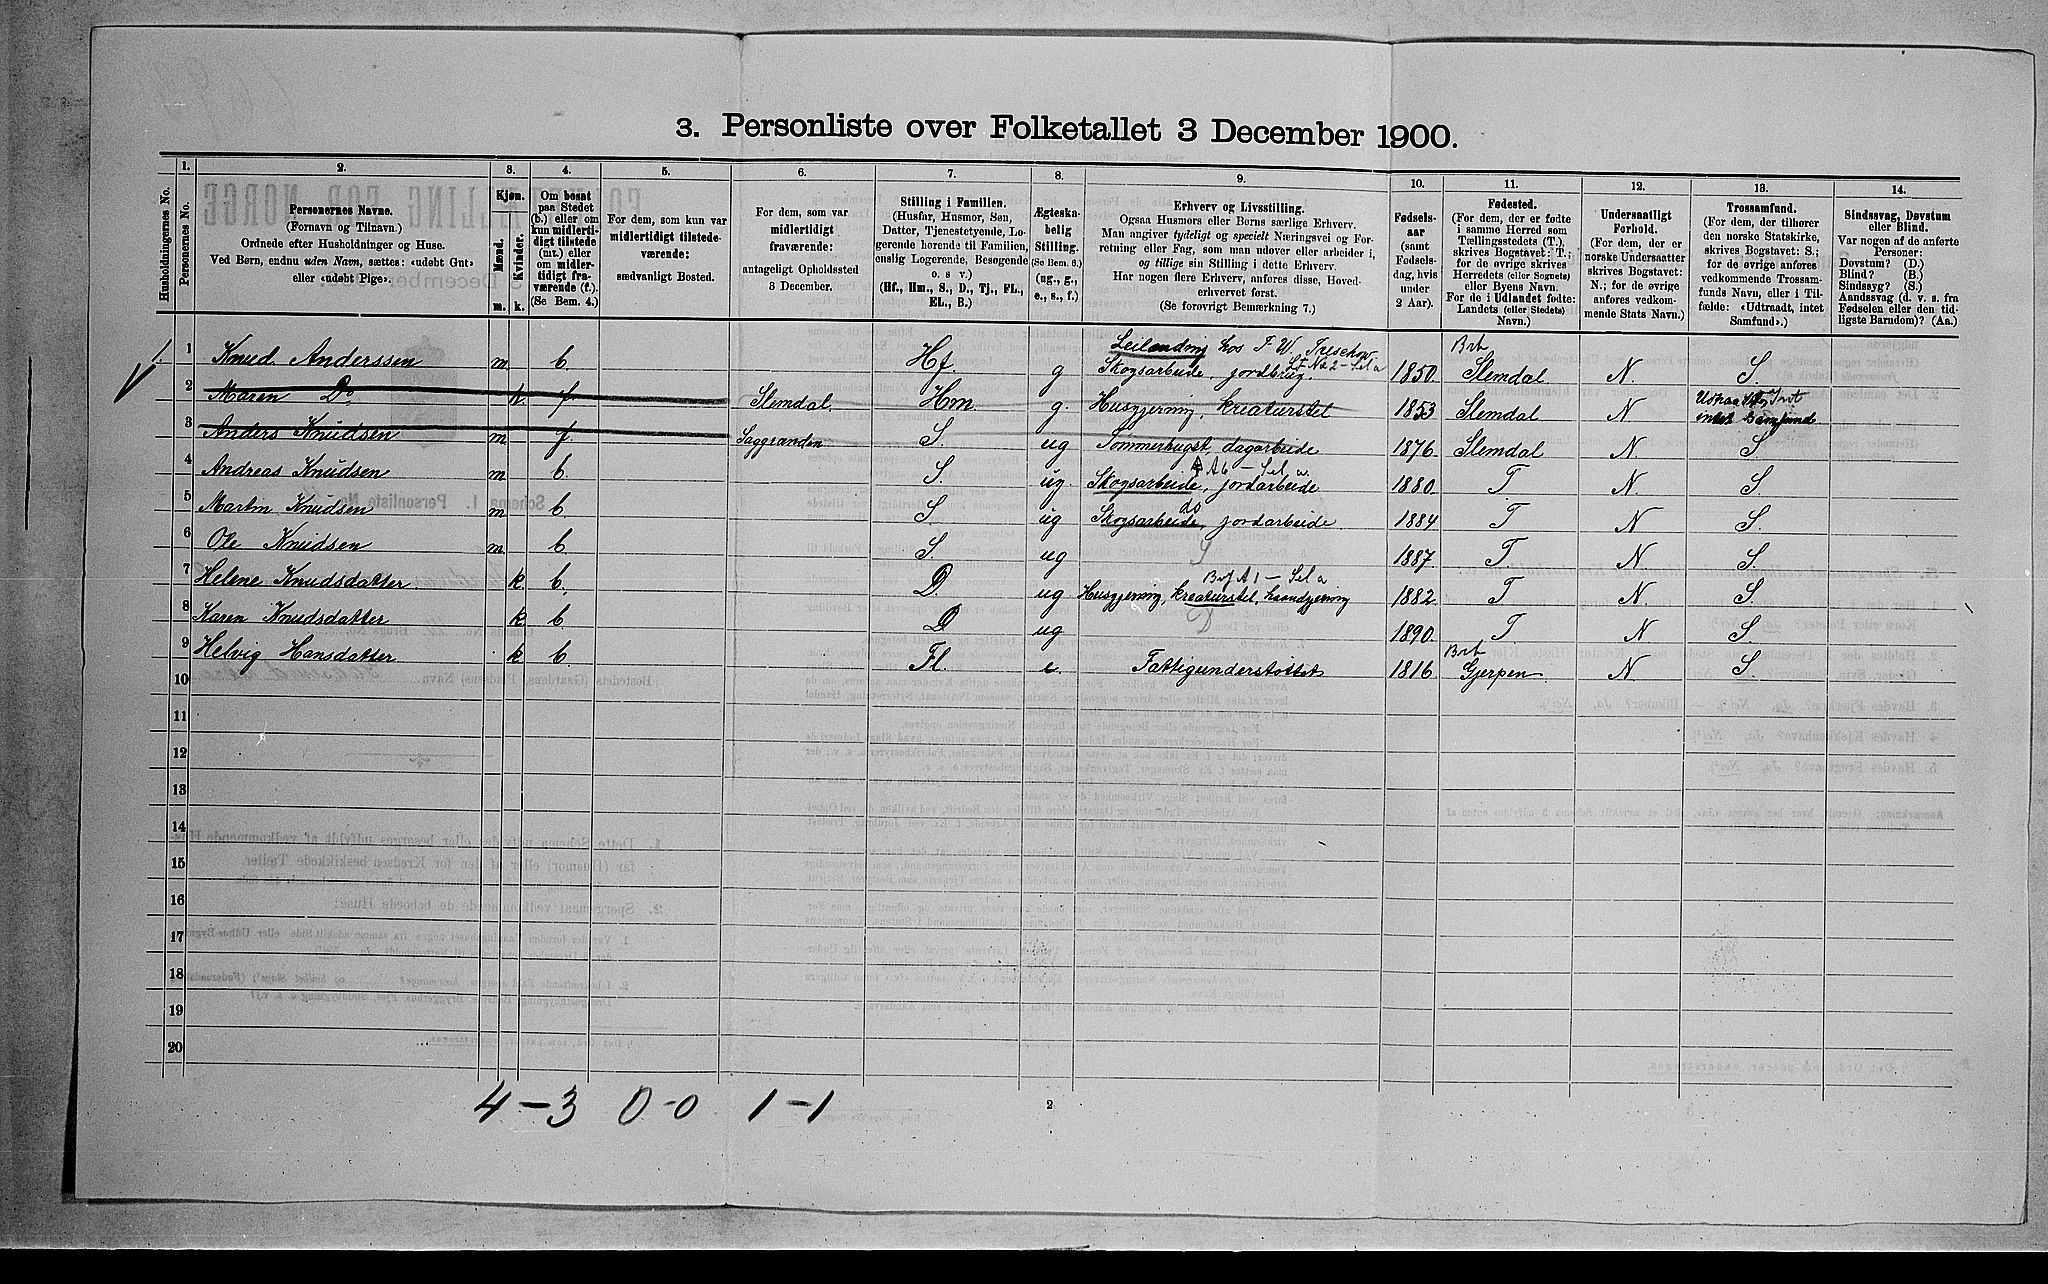 3. Personliste over Folketallet 3 December 1900.
Husholdningernes No.
1.
Personernes No.
2.
Personernes Navne.
(Fornavn og Tilnavn.)
Ordnede efter Husholdninger og Huse.
Ved Børn, endnu uden Navn, sættes: «udøbt Gut»
eller «udøbt Pige».
3.
Kjøn.
Mænd.
Kvinder.
m. k.
4.
Om bosat
paa Stedet
(b.) eller om
kun midlerti-
digt tilstede
(mt.) eller
om midler-
tidigt fra-
værende (f.).
(Se Bem. 4.)
5.
For dem, som kun var
midlertidigt tilstede-
værende:
sædvanligt Bosted.
6.
For dem, som var
midlertidigt
fraværende:
antageligt Opholdssted
3 December.
7.
Stilling i Familien.
(Husfar, Husmor, Søn,
Datter, Tjenestetyende, Lo-
gerende hørende til Familien,
enslig Logerende, Besøgende
o. s. v.)
(Hf., Hm., S., D., Tj., FL.,
EL., B.)
8.
Ægteska-
belig
Stilling.
(Se Bem. 6.)
(ug., g.,
e., s., f.)
9.
Erhverv og Livsstilling.
Ogsaa Husmors eller Børns særlige Erhverv.
Man angiver tydeligt og specielt Næringsvei og For-
retning eller Fag, som man udøver eller arbeider i,
og tillige sin Stilling i dette Erhverv.
Har nogen flere Erhverv, anføres disse, Hoved-
erhvervet først.
(Se forøvrigt Bemærkning 7.)
10.
Fødsels-
aar
(samt
Fødsels-
dag, hvis
under
2 Aar).
11.
Fødested.
(For dem, der er fødte
i samme Herred som
Tællingsstedets (T.),
skrives Bogstavet: T.;
for de øvrige skrives
Herredets (eller Sognets)
eller Byens Navn.
For de i Udlandet fødte:
Landets (eller Stedets)
Navn.)
12.
Undersaatligt
Forhold.
(For dem, der er
norske Undersaatter
skrives Bogstavet:
N.; for de øvrige
anføres vedkom-
mende Stats Navn.)
13.
Trossamfund.
(For dem, der tilhører
den norske Statskirke,
skrives Bogstavet: S.;
for de øvrige anføres
vedkommende Trossam-
funds Navn, eller i Til-
fælde: «Udtraadt, intet
Samfund».)
14.
Sindssvag, Døvstum
eller Blind.
Var nogen af de anførte
Personer:
Døvstum? (D.)
Blind? (B.)
Sindssyg? (S.)
Aandssvag (d. v. s. fra
Fødselen eller den tid-
ligste Barndom)? (Aa.)
Leilending hos F W Treschow Brb
1. 1 Knud Anderssen m. b. Hf. g Skogsarbeide, jordbrug. 1850. Slemdal. N. S.
2 Maren Do k. f. Slemdal. Hm g. Husgjerning, kreaturstel 1853 Slemdal N intet Samfund
3 Anders Knudsen m f. Saggrenden S. ug Tømmerhugst, dagarbeide 1876. Slemdal N. S
4 Andreas Knudsen m b. S. ug. Skogsarbeide, jordarbeide 1880. T N. S.
do
5 Martin Knudsen m b. S. ug Skogsarbeide, jordarbeide 1884 T N S.
6 Ole Knudsen m. b. S. ug S 1887. T N. S.
7 Helene Knudsdatter k. b. D. ug Husgjerning, kreaturstel, haandgjerning 1882. T N. S.
8 Karen Knudsdatter k b D ug D 1890. T. N S.
Brb
9 Helvig Hansdatter k b. Fl. e. Fattigunderstøttet 1816 Gjerpen N S.
10
11
12
13
14
15
16
17
18
19
20
4 - 3 0 - 0 1 - 1
2